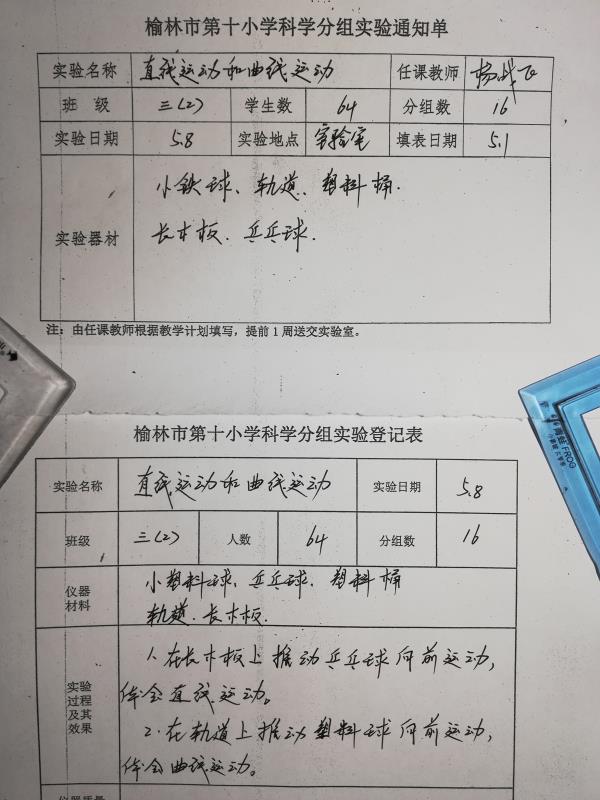 榆林市第十小学科学分组实验通知单
实验名称 直线运动和曲线运动 任课教师 杨战飞
班 级 三(2) 学生数 64 分组数 16
实验日期 5.8 实验地点 实验室 填表日期 5.1
小铁球、轨道、塑料桶.
实验器材 长木板.乒乓球.
注：由任课教师根据教学计划填写，提前1周送交实验室。
榆林市第十小学科学分组实验登记表
实验名称 直线运动和曲线运动 实验日期 5.8
班级 三(2) 人数 64 分组数 16
仪器材料 小塑料球.乒乓球.塑料桶
轨道.长木板.
实验过程及其效果
1、在长木板上推动乒乓球向前运动，
体会直线运动。
2.在轨道上推动塑料球向前运动，
体会曲线运动。